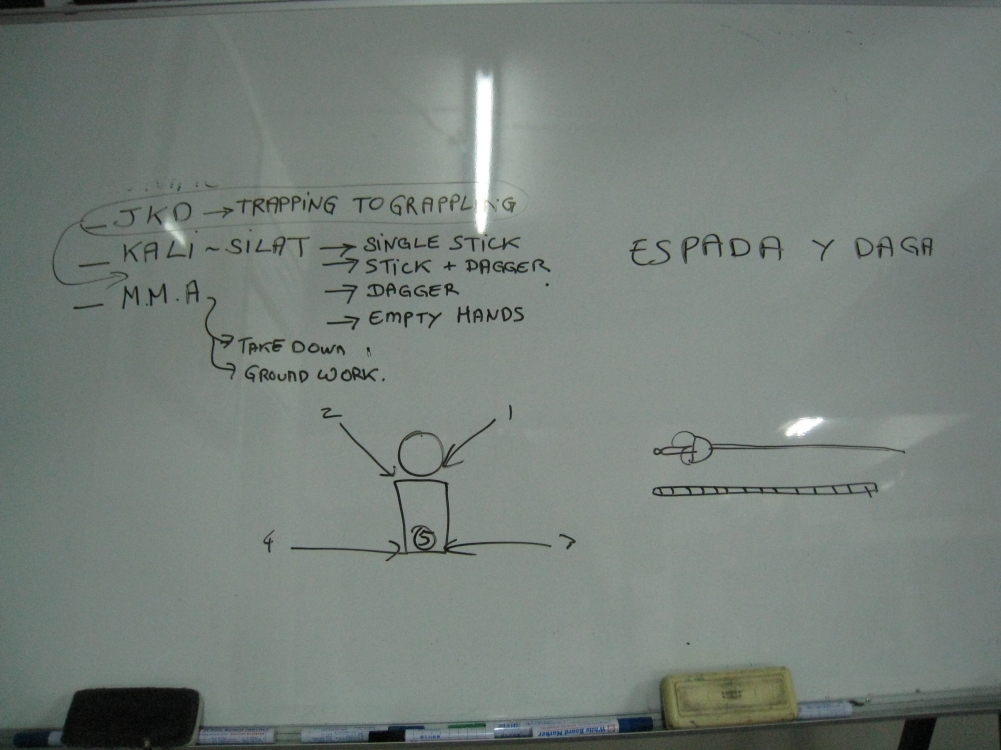 — JKD → TRAPPING TO GRAPPLING
— KALI ~ SILAT → SINGLE STICK
→ STICK + DAGGER
→ DAGGER
→ EMPTY HANDS
— M.M.A
→ TAKE DOWN
→ GROUND WORK.
ESPADA Y DAGA
2
1
5
4
White Board Marker